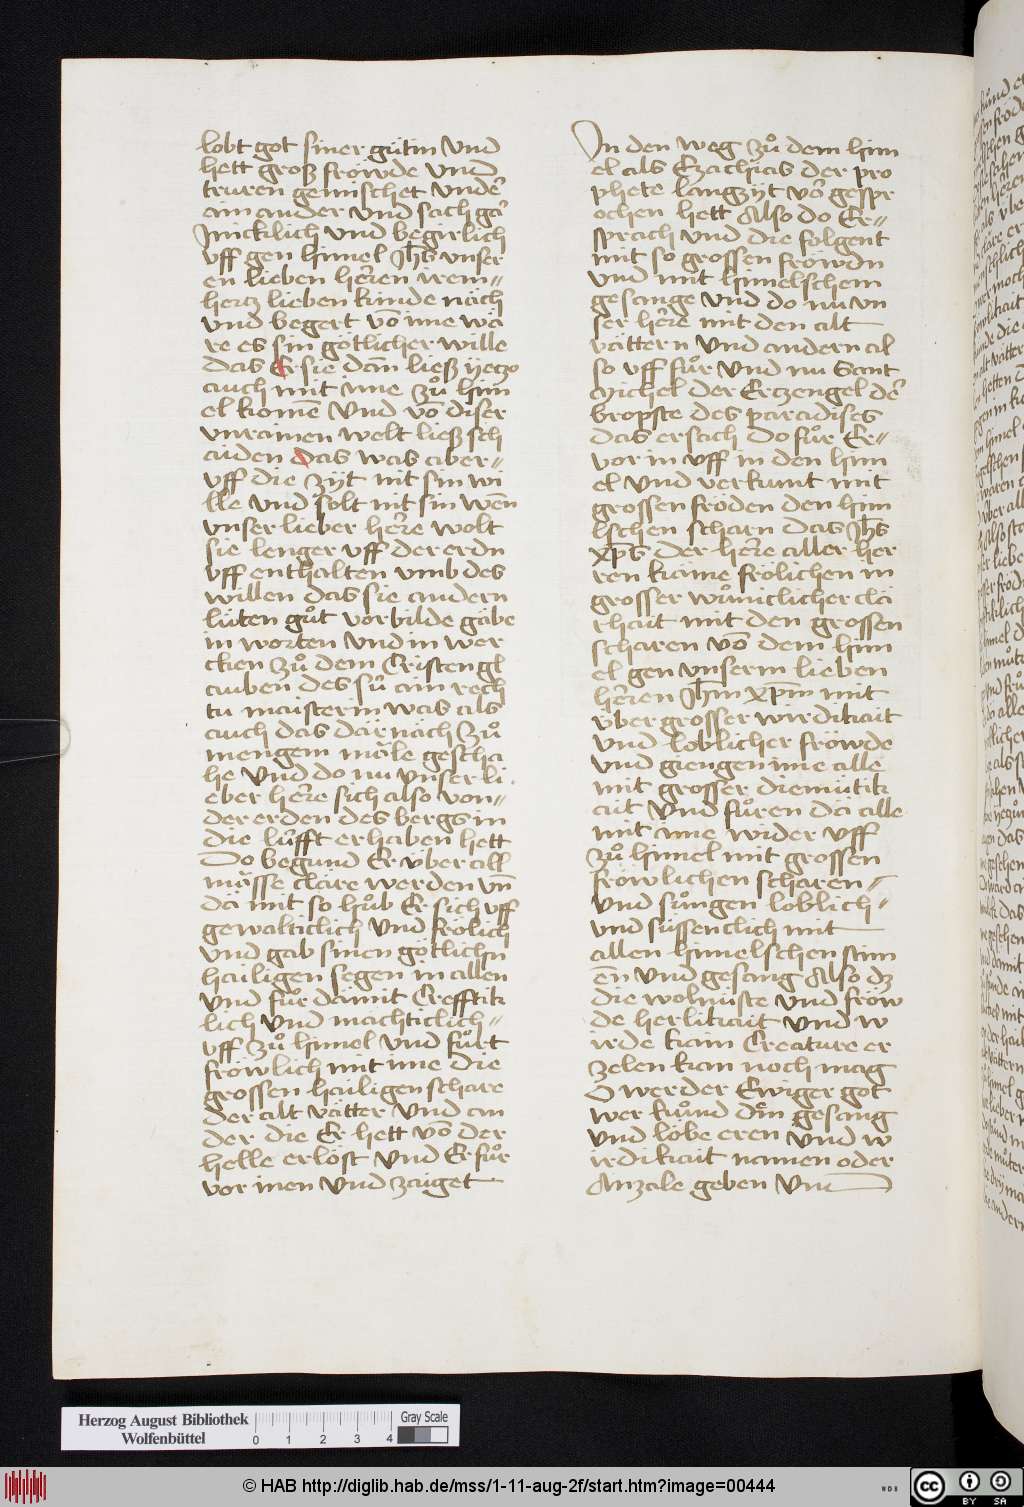 lobt got siner gütin Vnd
hett groß fröwde Vnd
truren gemischet vnder̄
ain ander Vnd sach gar̄
Innicklich vnd begirlich
vff gen himel Jhs̄ vnser
en lieben herren irem⸗
hertz lieben kinde nǎch
vnd begert vō ime wǎ
re es sin götlicher wille
das Er sie dan̄ ließ yetzo
auch mit ime zů him
el komē Vnd vō diser
vnrainen welt ließ sch
aiden das was aber⸗
vff die zyt nit sin wi
lle Vnd solt nit sin wēn
vnser lieber herre wolt
sie lenger vff der erdn
vff enthalten vmb des
willen das sie andern
lüten gůt vorbilde gäbe
in worten Vnd in wer
cken zů dem Cristengl
auben des sū ain rech
tu maisterin was als
auch das dar nach zů
mengem mǎle gescha
he Vnd do nu vnser li
eber herre sich also von⸗
der erden des bergs in
die lüfft erhaben hett
Do begund Er über all
mǎsse clǎre werden vn̄
dǎ mit so hůb Er sich vff
gewalticlich Vnd frölich
Vnd gab sinen götlichn
hailigen segen in allen
Vnd fůr dǎmit Crefftik
lich Vnd mächticlich⸗
vff zů himel Vnd fůrt
fröwlich mit ime die
grossen hailigen schare
der alt vätter Vnd an
der die Er hett vō der
helle erlöst Vnd Er fůr
vor inen Vnd zaiget
In den weg zů dem him
el als Ezachias der pro
phete langzyt vor gespr
ochen hett Also do Er⸗
sprach Vnd die folgent
mit so grossen fröwdn
Vnd mit himelschem
gesange Vnd do nu vn
ser herre mit den alt
vättern Vnd andern al
so vff fůr Vnd nu Sant
Michel der Ertzengel der̄
bropste des paradises
das ersach do fůr Er⸗
vor in vff in den him
el Vnd verkunt mit
grossen fröden den him
lschen scharn das Jhs̄
xp̄s der herre aller her
ren käme frölichen in
grosser wůniclicher clǎ
rhait mit den grossen
scharen vō dem him
el gen vnserm lieben
herren Jhm̄ xp̄m mit
vber grosser wirdikait
Vnd loblicher fröwde
Vnd giengen ime alle
mit grosser diemütik
ait Vnd fůren dǎ alle
mit ime wider vff
zů himel mit grossen
fröwlichen scharen⸗
Vnd sůngen loblich⸗
vnd süssenclich mit
allen himelschen stim
ēn Vnd gesang Also dz
die wolnüste Vnd fröw
de herlikait Vnd w
irde kain Creature er
zelen kan noch mag
O wer der Ewiger got
wer kůnd din gesang
Vnd löbe eren Vnd w
irdikait namen oder
Anzale geben Vnd
Herzog August Bibliothek
Wolfenbüttel
Gray Scale
0 1 2 3 4
© HAB http://diglib.hab.de/mss/1-11-aug-2f/start.htm?image=00444
WDB
CC BY SA